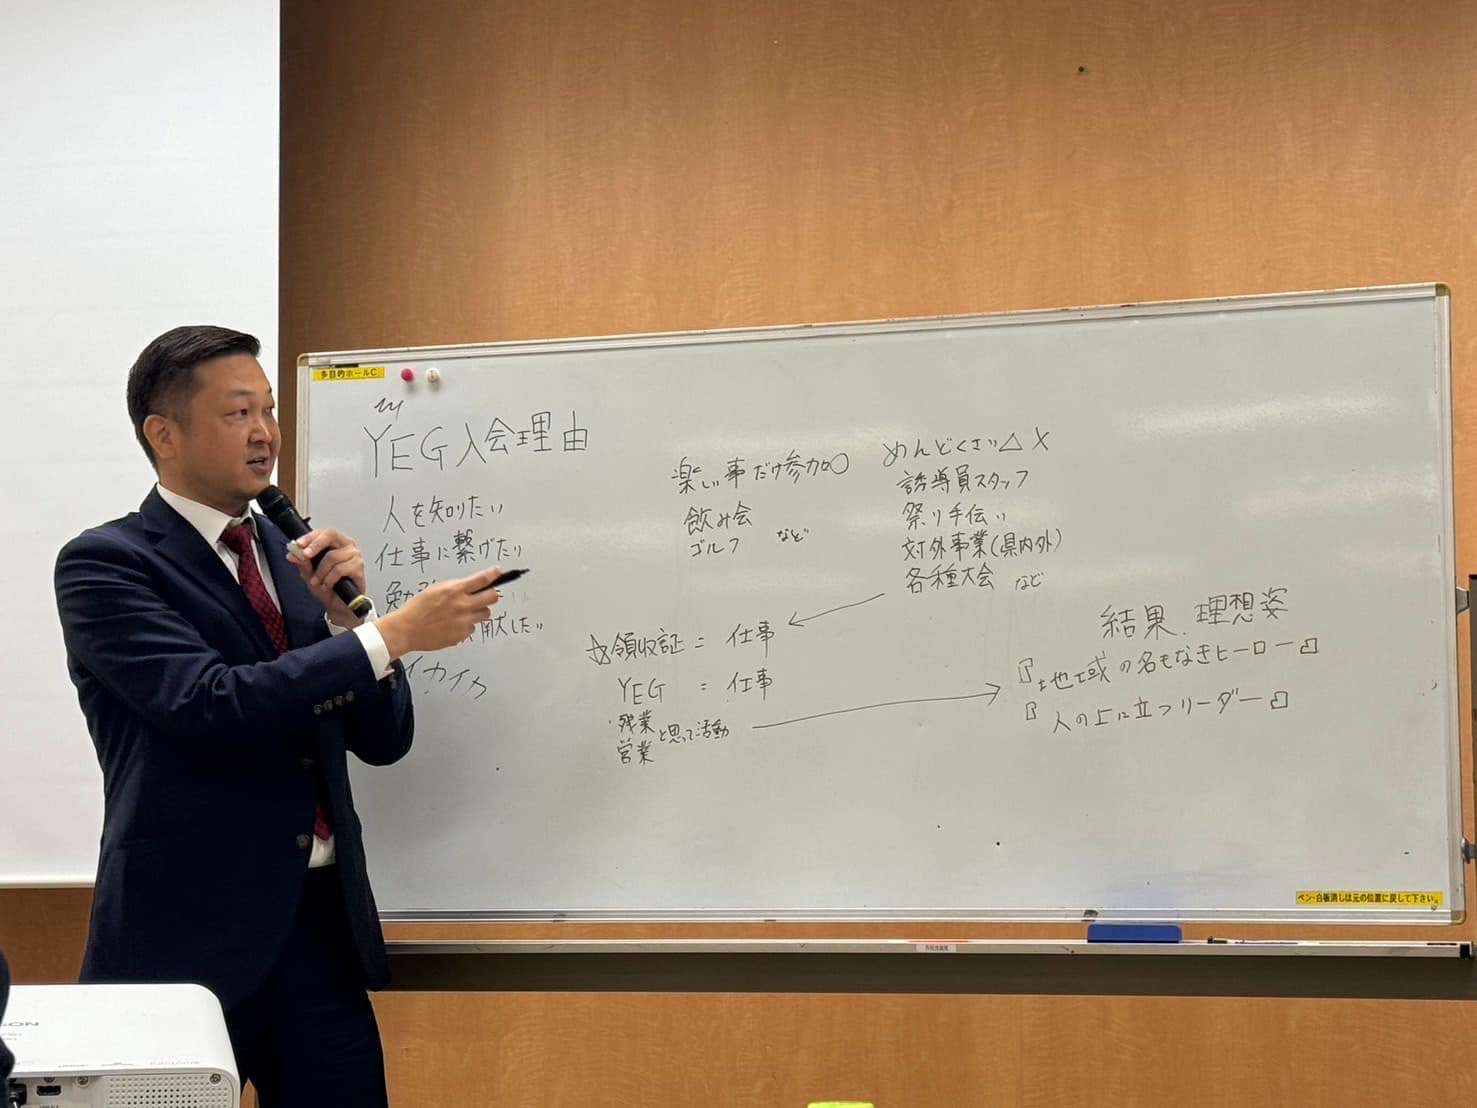 多目的ホールC
YEG入会理由
人を知りたい
仕事に繋げたい
献したい
イカイカ
楽しい事だけ参加○
飲み会
ゴルフ など
めんどくさい△ X
誘導員スタッフ
祭り手伝い
対外事業(県内外)
各種大会 など
☆領収証=仕事
YEG = 仕事
・残業
営業 と思って活動
結果、理想姿
『地域の名もなきヒーロー』
『人の上に立つリーダー』
ペン・白板消しは元の位置に戻して下さい。
SON